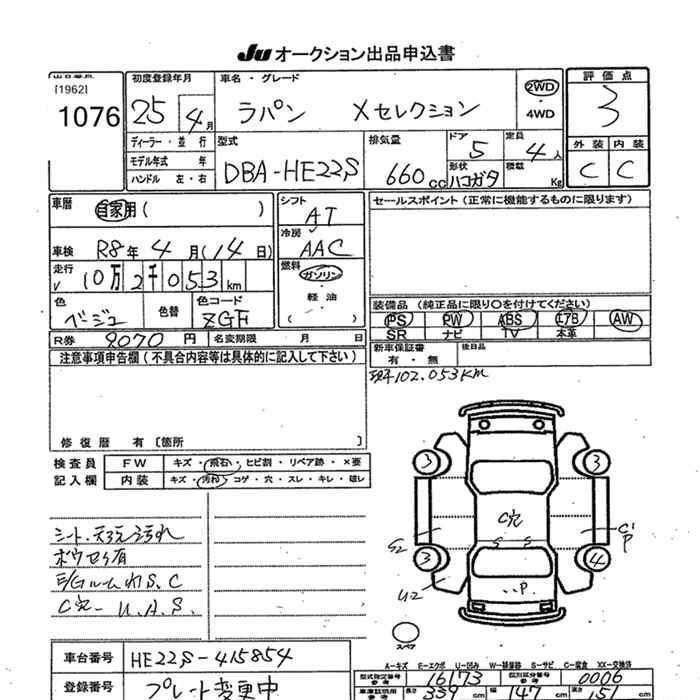 JU オークション出品申込書
[1962]
1076
初度登録年月
25 4月
車名・グレード
ラパン Xセレクション
2WD
・
4WD
評価点
3
外装 内装
C C
ディーラー・並行
モデル年式 年
ハンドル 左・右
型式
DBA-HE22S
排気量
660cc
ドア
5
定員
4人
形状
ハコガタ
積載
Kg
車歴
自家用( )
シフト
AT
冷房
AAC
セールスポイント(正常に機能するものに限ります)
車検 R8年 4月(14日)
走行
10万2千053km
燃料
ガソリン
・
軽油
・
( )
色
ベージュ
色替
色コード
ZGF
装備品(純正品に限り○を付けてください)
PS PW ABS エアB AW
SR ナビ TV 本革
R券 9070円 名変期限 月 日
新車保証書
有・無
後日品
注意事項申告欄(不具合内容等は具体的に記入して下さい)
現4102.053km
修復歴 有〔箇所 〕
検査員
記入欄
FW キズ・飛石・ヒビ割・リペア跡・×要
内装 キズ・汚れ・コゲ・穴・スレ・キレ・破レ
3 3
シート、天張汚れ
C穴
C'
P
ボウセイ有
S S
3 4
E/GルームサビS、C
U2
P
C穴- U.A.S.
スペア
車台番号 HE22S-415854
A-キズ E-エクボ U-凹み W-補修跡 S-サビ C-腐食 XX-交換済
型式指定番号
参考
16173
類別区分番号
参考
0006
登録番号 プレート変更中
長さ 339cm 幅 147cm 高さ 151cm